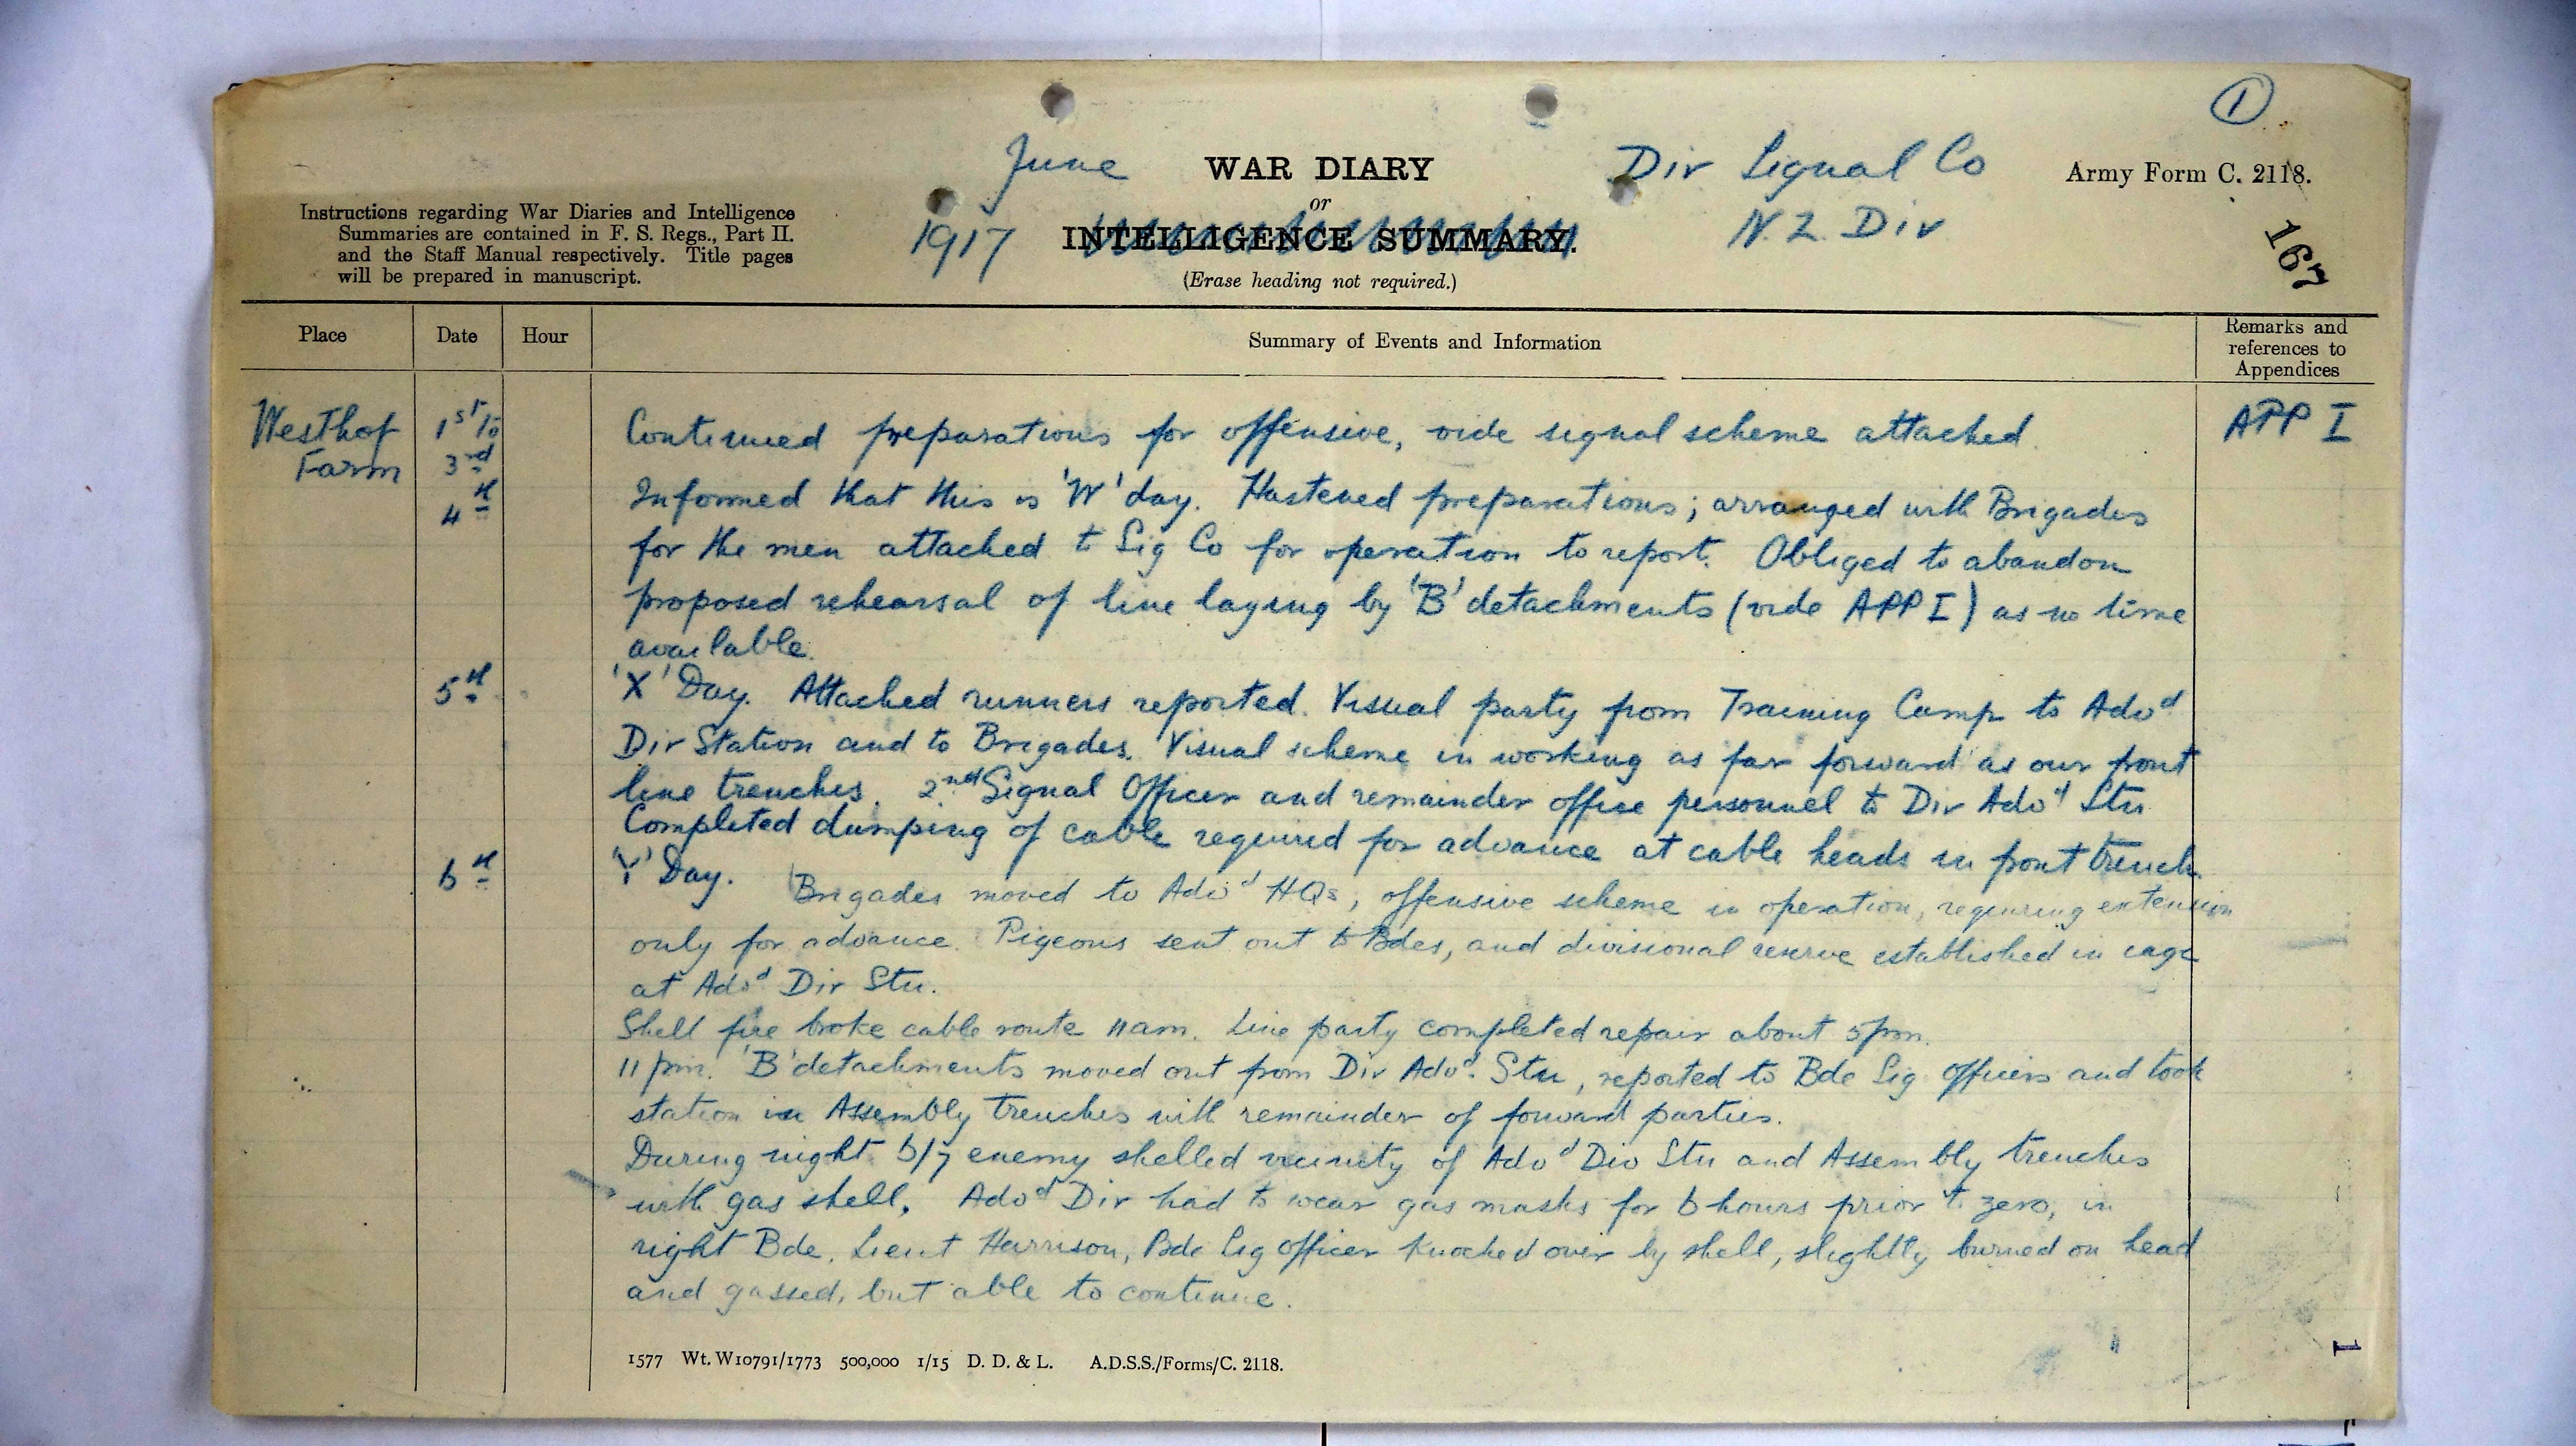 ①
June
WAR DIARY
Div Signal Co
Army Form C. 2118.
or
1917
INTELLIGENCE SUMMARY.
N.Z. Div
(Erase heading not required.)
167
Instructions regarding War Diaries and Intelligence
Summaries are contained in F. S. Regs., Part II.
and the Staff Manual respectively. Title pages
will be prepared in manuscript.
Place
Date
Hour
Summary of Events and Information
Remarks and
references to
Appendices
Westhof
Farm
1st to
3rd
Continued preparations for offensive, vide signal scheme attached.
APP I
4th
Informed that this is 'W' day. Hastened preparations; arranged with Brigades
for the men attached to Sig Co for operation to report. Obliged to abandon
proposed rehearsal of line laying by 'B' detachments (vide APP I) as no time
available.
5th
'X' Day. Attached runners reported. Visual party from Training Camp to Advd
Div Station and to Brigades. Visual scheme in working as far forward as our front
line trenches. 2nd Signal Officer and remainder office personnel to Div Advd Stn
Completed dumping of cable required for advance at cable heads in front trench.
6th
'Y' Day. Brigades moved to Advd HQs, offensive scheme in operation, requiring extension
only for advance. Pigeons sent out to Bdes, and divisional reserve established in cage
at Advd Div Stn.
Shell fire broke cable route 11am. Line party completed repair about 5pm.
11 pm. 'B' detachments moved out from Div Advd. Stn, reported to Bde Sig Officers and took
station in Assembly trenches with remainder of forward parties.
During night 6/7 enemy shelled vicinity of Advd Div Stn and Assembly trenches
with gas shell. Advd Div had to wear gas masks for 6 hours prior to zero, in
right Bde. Lieut Harrison, Bde Sig Officer knocked over by shell, slightly burned on head
and gassed, but able to continue.
1577 Wt. W10791/1773 500,000 1/15 D. D. & L. A.D.S.S./Forms/C. 2118.
1